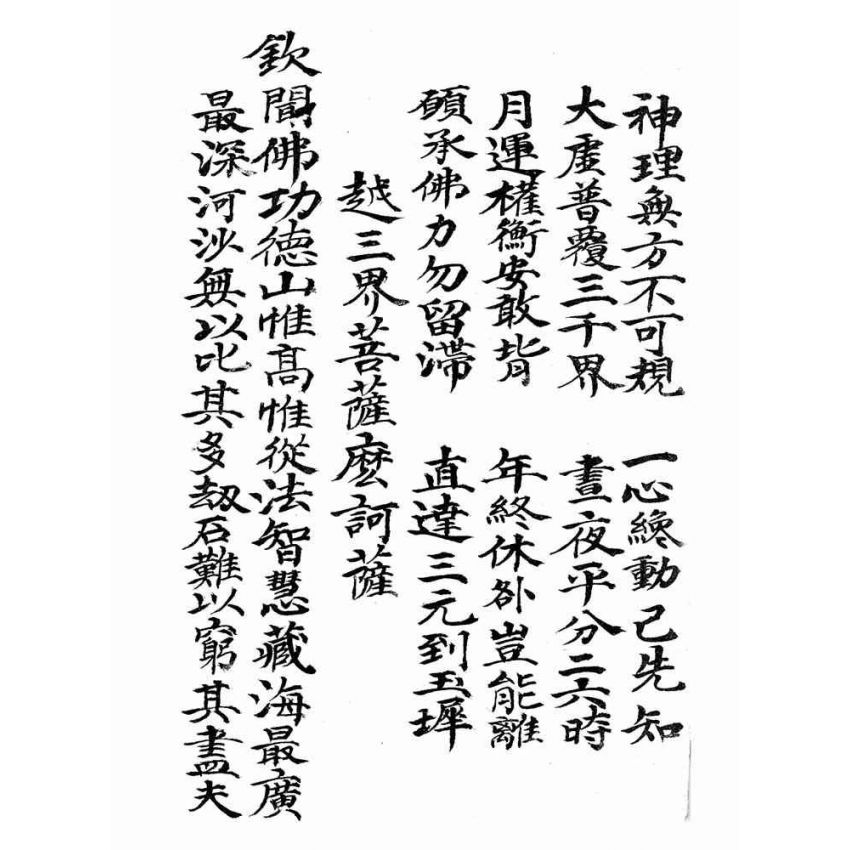 神理無方不可規 一心纔動已先知
大虛普覆三千界 晝夜平分二六時
月運權衡安敢背 年終休咎豈能離
願承佛力勿留滯 直達三元到玉墀
越三界菩薩麼訶薩
欽聞佛功德山惟高惟從法智慧藏海最廣
最深河沙無以比其多劫石難以窮其盡夫